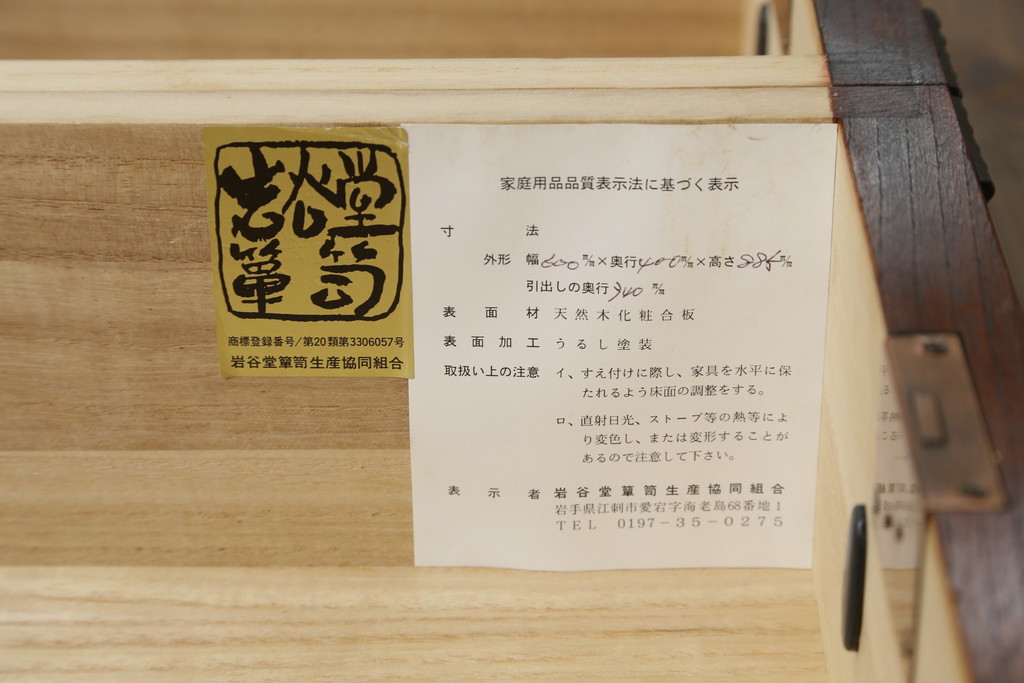 岩谷堂
簞笥
商標登録番号/第20類第3306057号
岩谷堂簞笥生産協同組合
家庭用品品質表示法に基づく表示
寸法
外形 幅600m/m×奥行400m/m×高さ885m/m
引出しの奥行340m/m
表面材 天然木化粧合板
表面加工 うるし塗装
取扱い上の注意 イ、すえ付けに際し、家具を水平に保
たれるよう床面の調整をする。
ロ、直射日光、ストーブ等の熱等によ
り変色し、または変形することが
あるので注意して下さい。
表示者 岩谷堂簞笥生産協同組合
岩手県江刺市愛宕字海老島68番地1
TEL 0197-35-0275